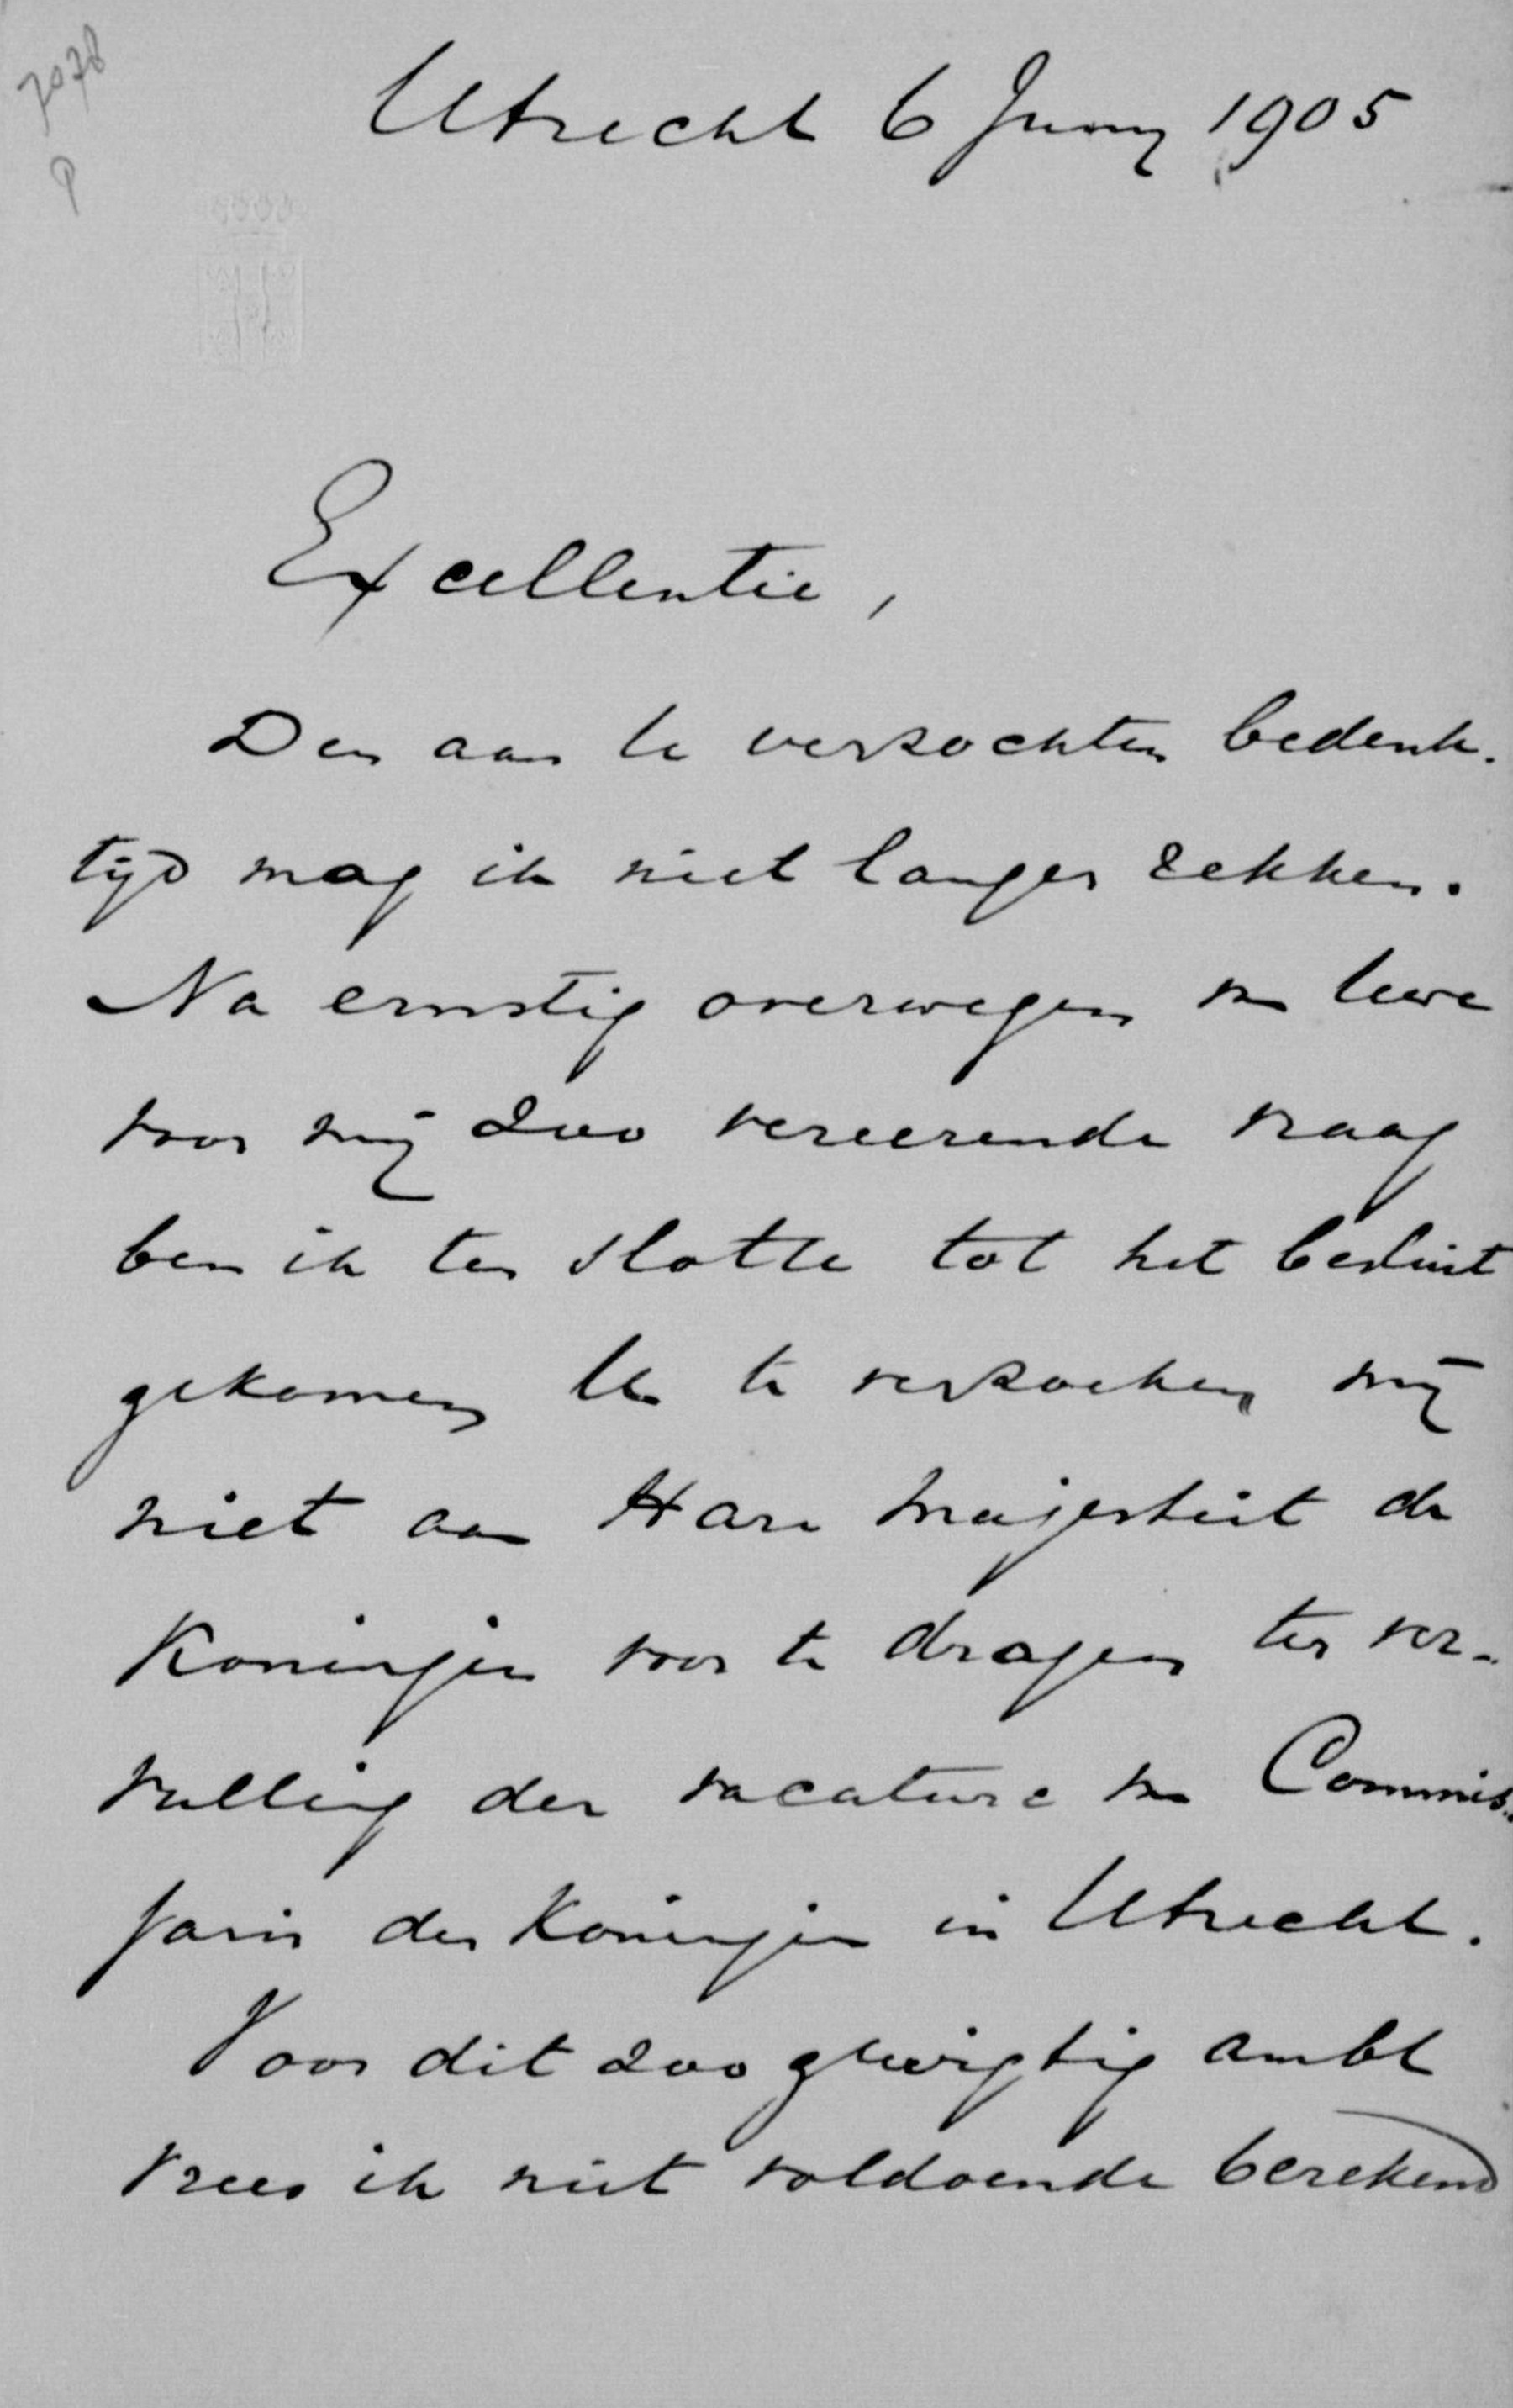 7078
P
Utrecht 6 Juny 1905
Excellentie,
Den aan U verzochten bedenk-
tijd mag ik niet langer rekken.
Na ernstig overwegen van Uwe
voor mij zoo vereerende vraag
ben ik ten slotte tot het besluit
gekomen U te verzoeken mij
niet aan Hare Majesteit de
Koningin voor te dragen ter ver-
vulling der vacature van Commis-
saris der Koningin in Utrecht.
Voor dit zoo gewigtig ambt
vrees ik niet voldoende berekend